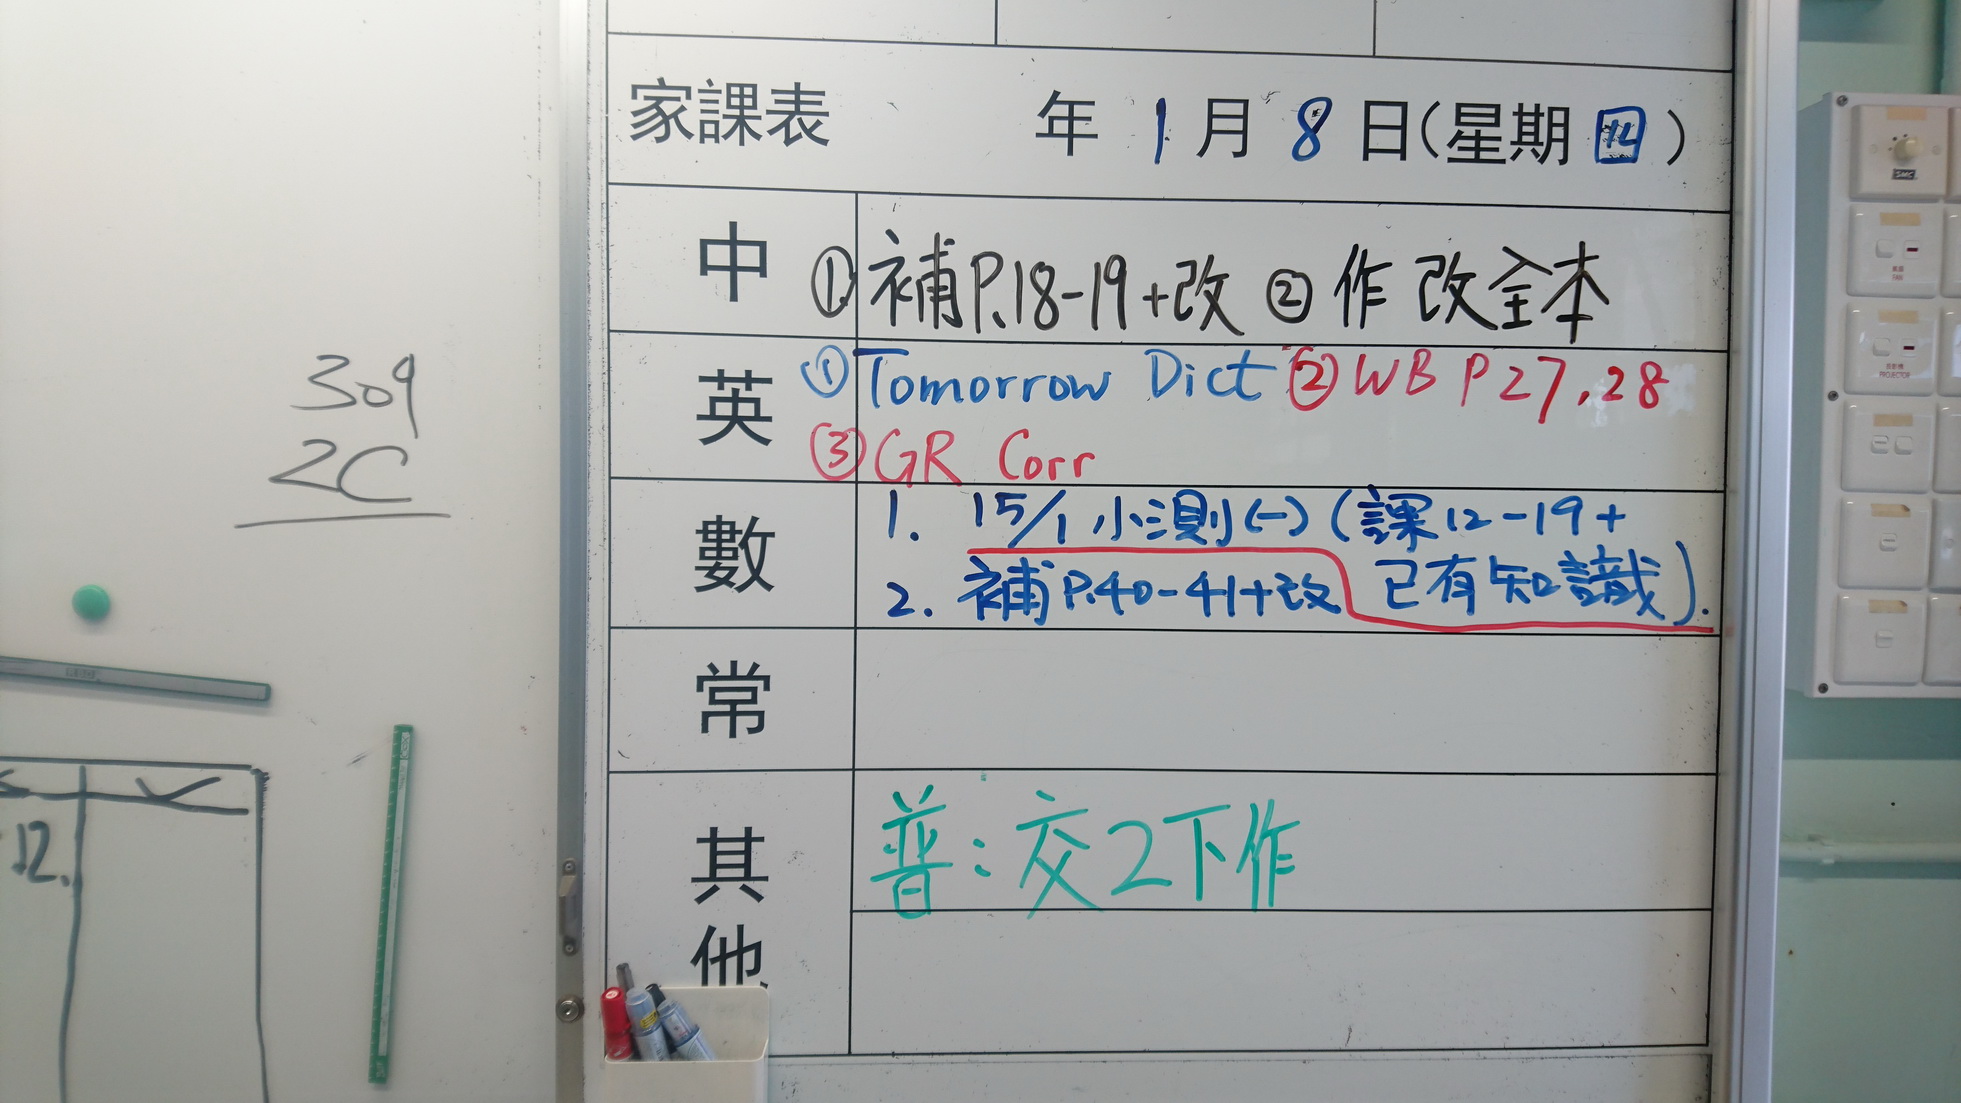 家課表 年 1 月 8 日(星期 四)
中 ①補P.18-19+改 ②作 改全本
英 ①Tomorrow Dict ②WB P27,28
③GR Corr
數 1. 15/1 小測(一)(課12-19+
已有知識).
2. 補P.40-41+改
常
其他 普:交2下作
309
2C
12.
SMC
FAN
PROJECTOR